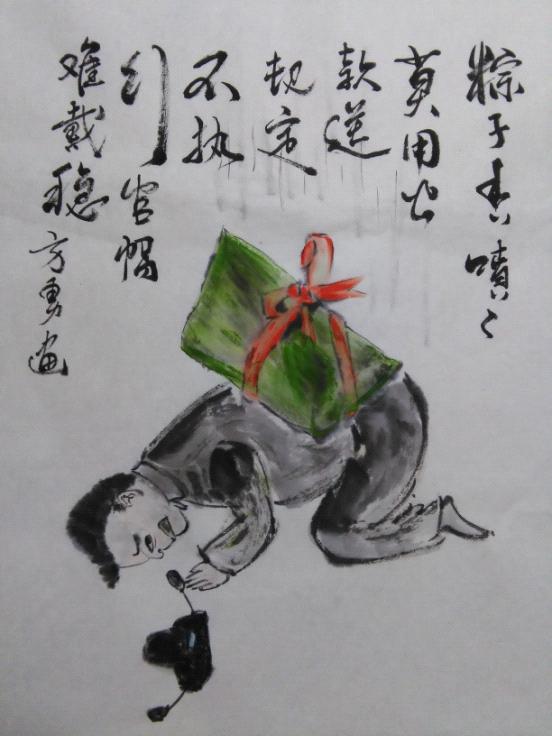 粽子香喷々
莫用公
款送
规定
不执
行官帽
难戴稳
方勇画